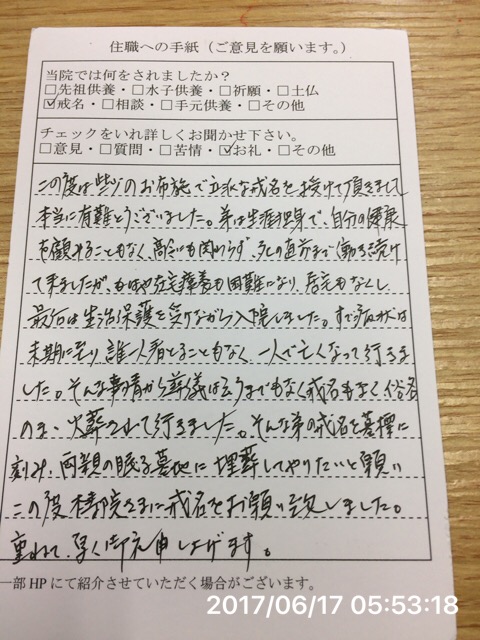 住職への手紙（ご意見を願います。）
当院では何をされましたか？
□先祖供養・□水子供養・□祈願・□土仏
☑戒名・□相談・□手元供養・□その他
チェックをいれ詳しくお聞かせ下さい。
□意見・□質問・□苦情・☑お礼・□その他
この度は些少のお布施で立派な戒名を授けて頂きまして
本当に有難とうございました。弟は生涯独身で、自分の健康
を顧みることもなく、高齢にも関わらず、死の直前まで働き続け
て来ましたが、もはや在宅療養も困難になり、居宅もなくし
最后は生活保護を受けながら入院しました。すで病状は
末期に至り誰一人看とることもなく、一人で亡くなって行きま
した。そんな事情から葬儀は言うまでもなく戒名もなく俗名
のまゝ火葬されて行きました。そんな弟の戒名を墓標に
刻み、両親の眠る墓地に埋葬してやりたいと願い
この度 院さまに戒名をお願い致しました。
重ねて、厚く御礼申し上げます。
一部HPにて紹介させていただく場合がございます。
2017/06/17 05:53:18